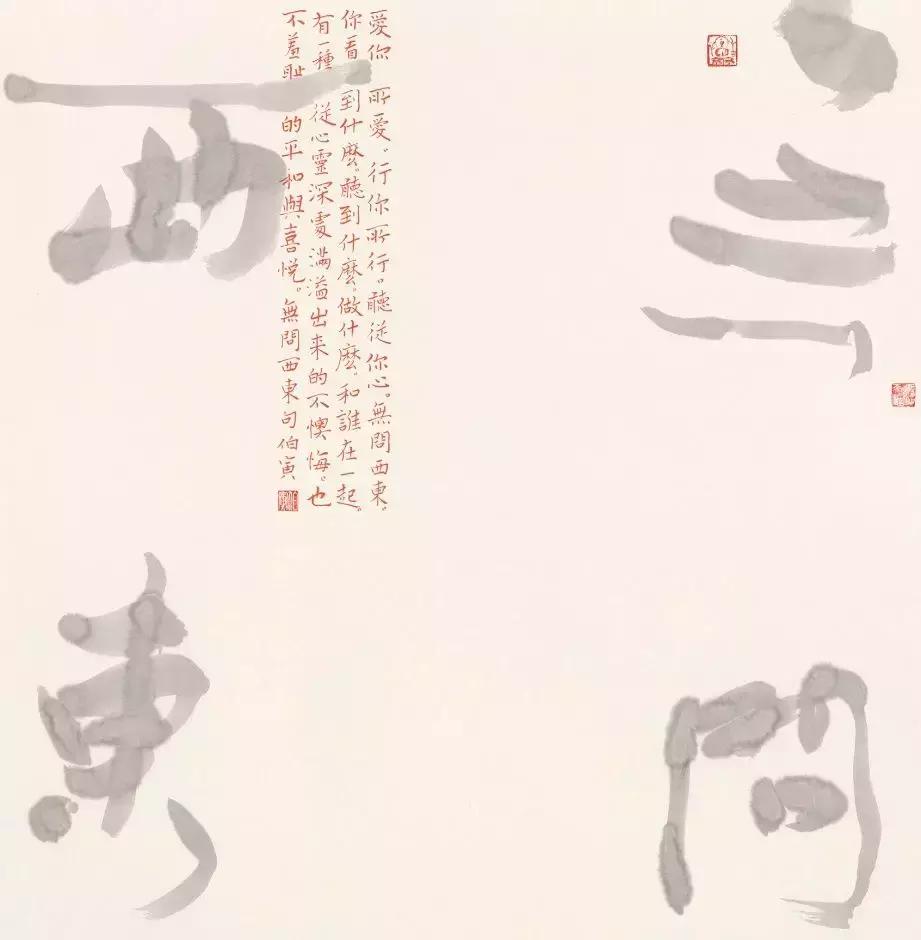 無問
西東
愛你所愛。行你所行。聽從你心。無問西東。
你看到什麼。聽到什麼。做什麼。和誰在一起。
有一種從心靈深處滿溢出来的不懊悔。也
不羞耻的平和與喜悦。無問西東句伯寅